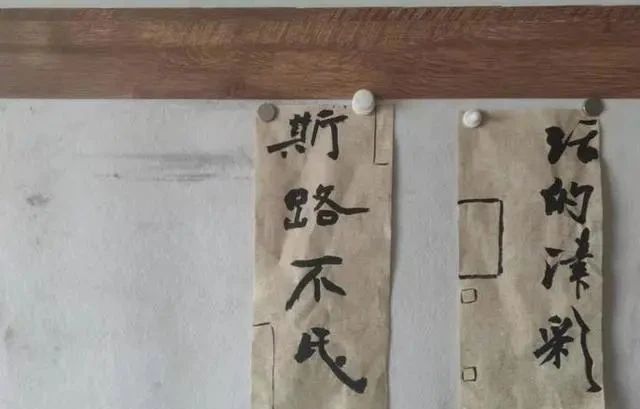 活的津彩
斯路不民